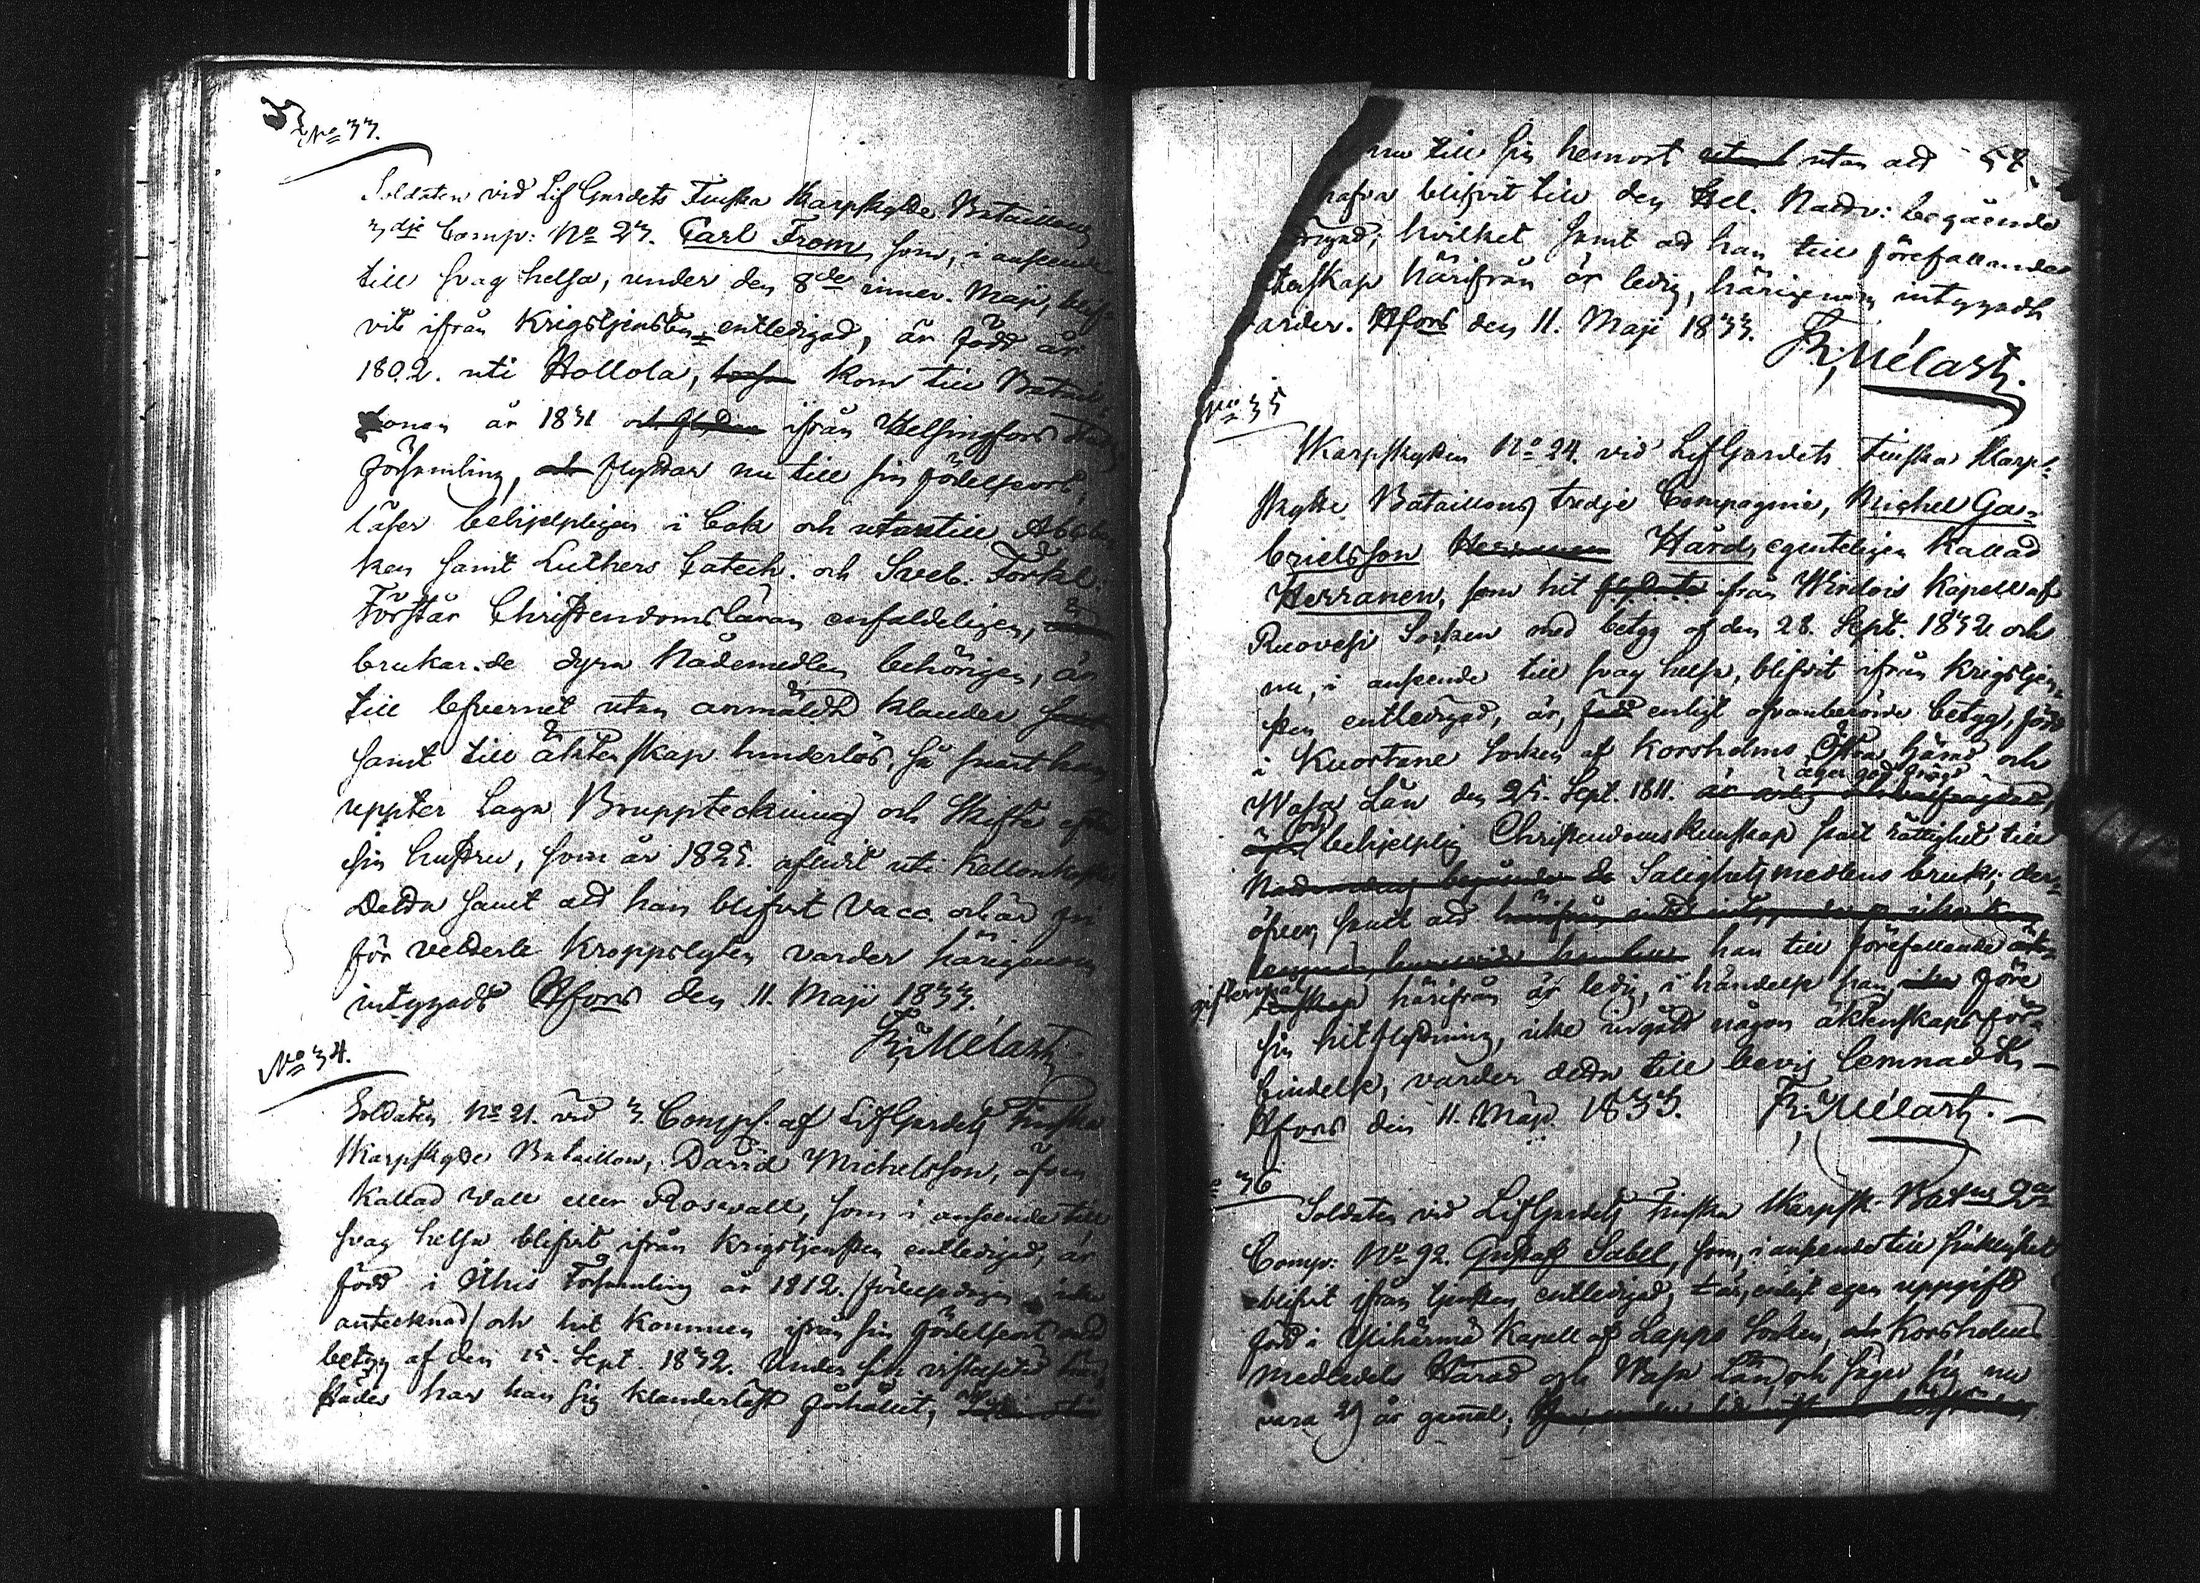 No 33.
Soldaten vid Lif Gardets Finska Skarpskytte Bataillons
3dje Comp: No 23. Carl From som, i anseende
till svag helsa, under den 8de innev. Maji, blif-
vit ifrån Krigstjensten entledigad, är född år
1802. uti Hollola, kom till Batail-
lonen år 1831 ifrån Helsingfors
församling, flyttar nu till sin födelseort,
läser behjelpligen i bok och utantill Abcbo-
ken samt Luthers Catech. och Sveb. Förkl.
Förstår Christendomsläran enfaldeligen,
brukar de dyra Nådemedlen behörigen, är
till lefvernet utan anmäldt klander
samt till äktenskap hinderlös, så snart han
uppter Laga Bouppteckning och Skifte efter
sin hustru, som år 1825. aflidit uti
Detta samt att han blifvit vacc. och är
för vederla Kroppslyten varder härigenom
intygadt Hfors den 11. Maji 1833.
Fr: Mélart
No 34.
Soldaten No 21. vid 3. Comp. af Lif Gardets Finska
Skarpskytte Bataillon, David Michelsson, äfven
Kallad Wall eller Roswall, som i anseende till
svag helsa blifvit ifrån Krigstjensten entledigad, är
född i Församling år 1812. /födelsedagen icke
antecknad/ och hit kommen ifrån sin födelseort med
betyg af den 15. Sept. 1832. Under sin vistelsetid här-
städes har han sig klanderlöst förhållit,
nu till sin hemort utan att 58.
hafva blifvit till den Hel. Nattv: begående
hvilket samt att han till förefallande
tenskap härifrån är ledig, härigenom intygadt
varder. Hfors den 11. Maji 1833.
Fr: Mélart.
No 35
Skarpskytten No 24. vid Lif Gardets Finska Skarp-
skytte Bataillons tredje Compagnie, Michel Ga-
brielsson Herranen Hård, egenteligen Kallad
Herranen, som hit flyttat ifrån Wirdois Kapell af
Ruovesi Socken med betyg af den 28. Sept. 1832. och
nu, i anseende till svag helsa, blifvit ifrån Krigstjen-
sten entledigad, är, född enligt ofvanberörde betyg, född
i Kuortane Socken af Korsholms Östra härad och
Wasa Län den 25. Sept. 1811. äger god frägd
och behjelplig Christendoms Kunskap samt rättighet till
de Salighetsmedlens bruk; der-
öfver, samt att
han till förefallande
giftermål härifrån är ledig, i händelse han före
sin hitflyttning, icke ingått någon äktenskapsför-
bindelse, varder detta till bevis lemnadt.
Hfors den 11. Maji 1833. Fr: Mélart.
36
Soldaten vid Lif Gardets Finska Skarpsk. Batns 2dra
Comp: No 92. Gustaf Sabel, som, i anseende till sjuklighet
blifvit ifrån tjensten entledigad, är, enligt egen uppgift
född i Ylihärmä Kapell af Lappo Socken, Korsholms
medledels Härad och Wasa Län och säger sig nu
vara 29 år gamal;